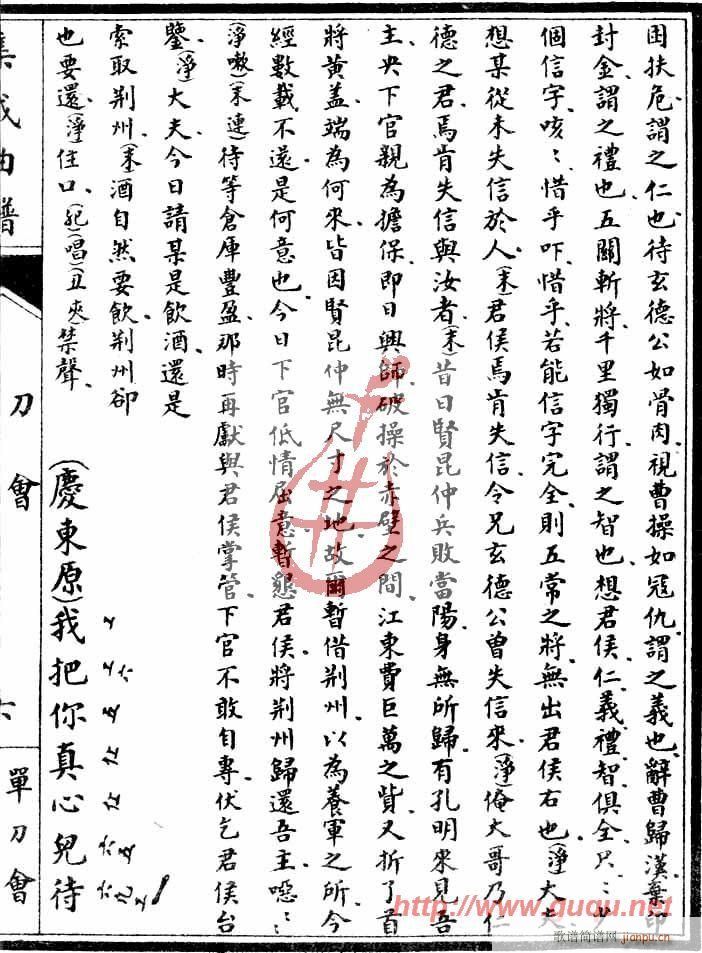 困扶危、謂之仁也、待玄德公如骨肉、視曹操如寇仇、謂之義也、辭曹歸漢、棄印
封金、謂之禮也、五關斬將、千里獨行、謂之智也、想君侯仁義禮智俱全、只
個信字、咳、惜乎吓惜乎、若能信字完全、則五常之將、無出君侯右也、(淨)大夫、
想某從未失信於人、(末)君侯焉肯失信、令兄玄德公曾失信來、(淨)俺大哥乃仁
德之君、焉肯失信與汝者、(末)昔日賢昆仲兵敗當陽、身無所歸、有孔明來見吾
主、央下官親為擔保、即日興師、破操於赤壁之間、江東費巨萬之貲、又折了首
將黃蓋、端為何來、皆因賢昆仲無尺寸之地、故爾暫借荆州、以為養軍之所、今
經數載不還、是何意也、今日下官低情屈意、暫懇君侯、將荆州歸還吾主、噁
(淨嗽)(末連)待等倉庫豐盈、那時再獻與君侯掌管、下官不敢自專、伏乞君侯台
鑒、(淨)大夫今日請某是飲酒、還是
索取荆州、(末)酒自然要飲、荆州卻
也要還、(淨)住口、(起)(唱)(丑夾)禁聲、
(慶東原)我把你真心兒待
工 六 工 五 六 五 六 九 工
集成曲譜
刀會
六
單刀會
http://www.guqu.net
歌谱简谱网
jianpu.cn